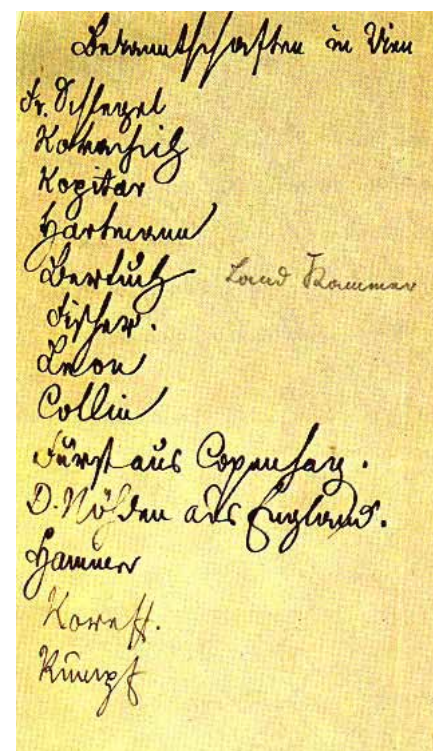 Bekanntschaften in Wien
Fr. Schlegel
Kovachich
Kopitar
Hartmann
Bertuch Land Kammer
Fischer.
Leon
Collin
Fürst aus Copenhag.
D. Nöhden aus England.
Hammer
Koreff.
Rumpf